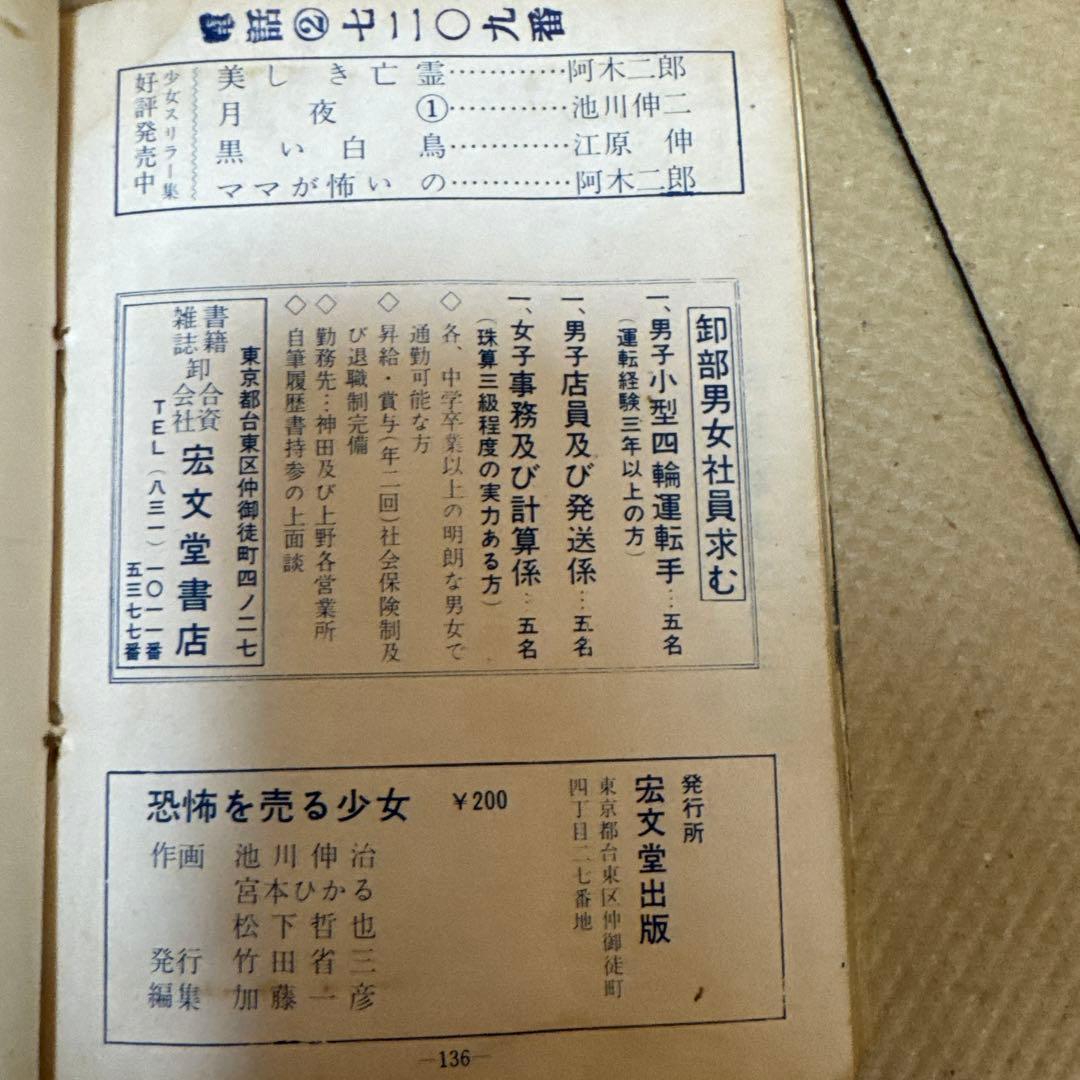 電話②七二〇九番
少女スリラー集
好評発売中
美しき亡霊…………阿木二郎
月夜①…………池川伸二
黒い白鳥…………江原伸
ママが怖いの…………阿木二郎
卸部男女社員求む
一、男子小型四輪運転手…五名
（運転経験三年以上の方）
一、男子店員及び発送係…五名
一、女子事務及び計算係…五名
（珠算三級程度の実力ある方）
◇各、中学卒業以上の明朗な男女で
通勤可能な方
◇昇給・賞与（年二回）社会保険制及
び退職制完備
◇勤務先…神田及び上野各営業所
◇自筆履歴書持参の上面談
東京都台東区仲御徒町四ノ二七
書籍
雑誌
卸
合資
会社
宏文堂書店
TEL（八三一）一〇一一番
五三七七番
恐怖を売る少女 ￥200
作画 池川伸治
宮本ひかる
松下哲也
発行 竹田省三
編集 加藤一彦
発行所
宏文堂出版
東京都台東区仲御徒町
四丁目二七番地
―136―